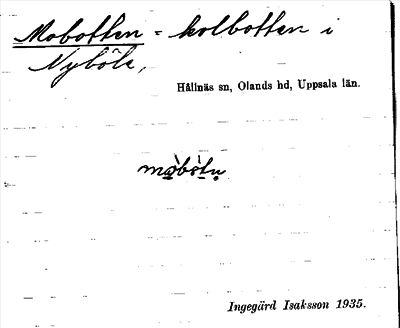 Mobotten = kolbotten i
Nyböle,
Hållnäs sn, Olands hd, Uppsala län.
Ingegärd Isaksson 1935.